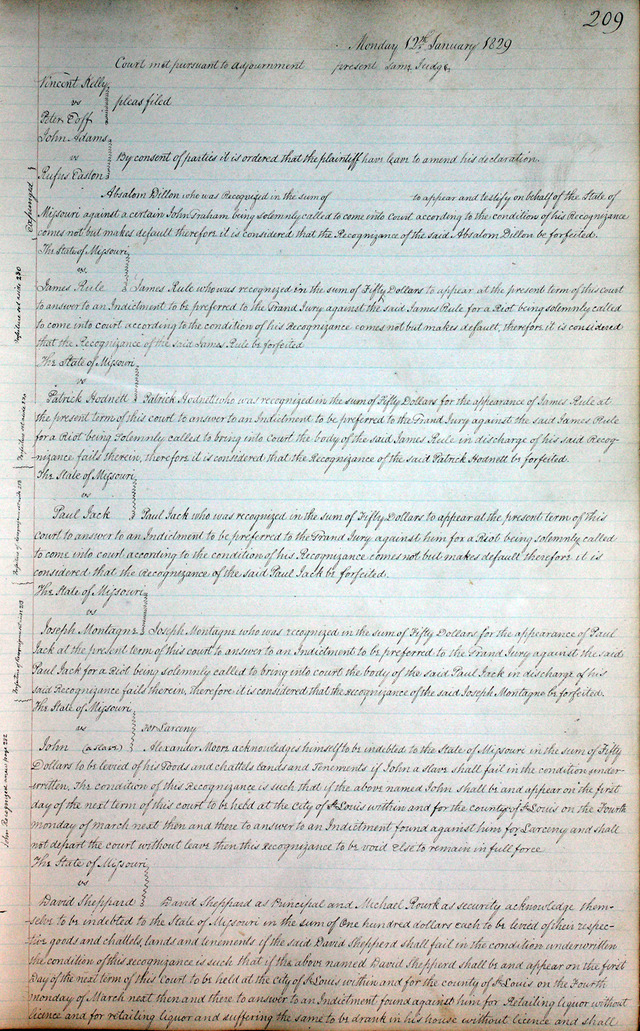 209
Monday 12th January 1829
Court met pursuant to adjournment present same Judge
Vincent Kelly
vs pleas filed
Peter Goff
John Adams
vs By consent of parties it is ordered that the plaintiff have leave to amend his declaration.
Rufus Easton
Expunged
Absalom Dillon who was Recognized in the sum of to appear and testify on behalf of the State of
Missouri against a certain John Graham being solemnly called to come into Court according to the condition of his Recognizance
comes not but makes default therefore it is considered that the Recognizance of the said Absalom Dillon be forfeited.
The State of Missouri
vs
James Rule James Rule who was recognized in the sum of Fifty Dollars to appear at the present term of this court
to answer to an Indictment to be preferred to the Grand Jury against the said James Rule for a Riot being solemnly called
to come into court according to the condition of his Recognizance comes not but makes default, therefore it is considered
that the Recognizance of the said James Rule be forfeited
The State of Missouri
vs
Patrick Hodnett Patrick Hodnett who was recognized in the sum of Fifty Dollars for the appearance of James Rule at
the present term of this court to answer to an Indictment to be preferred to the Grand Jury against the said James Rule
for a Riot being Solemnly called to bring into Court the body of the said James Rule in discharge of his said Recog-
nizance fails therein, therefore it is considered that the Recognizance of the said Patrick Hodnett be forfeited.
The State of Missouri
vs
Paul Jack Paul Jack who was recognized in the sum of Fifty Dollars to appear at the present term of this
court to answer to an Indictment to be preferred to the Grand Jury against him for a Riot being solemnly called
to come into court according to the condition of his Recognizance comes not but makes default therefore it is
considered that the Recognizance of the said Paul Jack be forfeited.
The State of Missouri
vs
Joseph Montagne Joseph Montagne who was recognized in the sum of Fifty Dollars for the appearance of Paul
Jack at the present term of this court to answer to an Indictment to be preferred to the Grand Jury against the said
Paul Jack for a Riot being solemnly called to bring into court the body of the said Paul Jack in discharge of his
said Recognizance fails therein, therefore it is considered that the recognizance of the said Joseph Montagne be forfeited.
The State of Missouri
vs for Larceny
John (a slave) Alexander Moore acknowledges himself to be indebted to the State of Missouri in the sum of Fifty
Dollars to be levied of his Goods and chattels lands and Tenements if John a slave shall fail in the condition under-
written, The condition of this Recognizance is such that if the above named John shall be and appear on the first
day of the next term of this court to be held at the City of St Louis within and for the county of St Louis on the Fourth
monday of march next then and there to answer to an Indictment found against him for Larceny and shall
not depart the court without leave then this recognizance to be void else to remain in full force
The State of Missouri
vs
David Sheppard David Sheppard as Principal and Michael Rourk as security acknowledge them-
selves to be indebted to the State of Missouri in the sum of One hundred dollars each to be levied of their respec-
tive goods and chattels, lands and tenements if the said David Shepperd shall fail in the condition underwritten
the condition of this recognizance is such that if the above named David Shepperd shall be and appear on the first
Day of the next term of this Court to be held at the city of St Louis within and for the county of St Louis on the Fourth
monday of March next then and there to answer to an Indictment found against him for Retailing liquor without
licence and for retailing liquor and suffering the same to be drank in his house without licence and shall